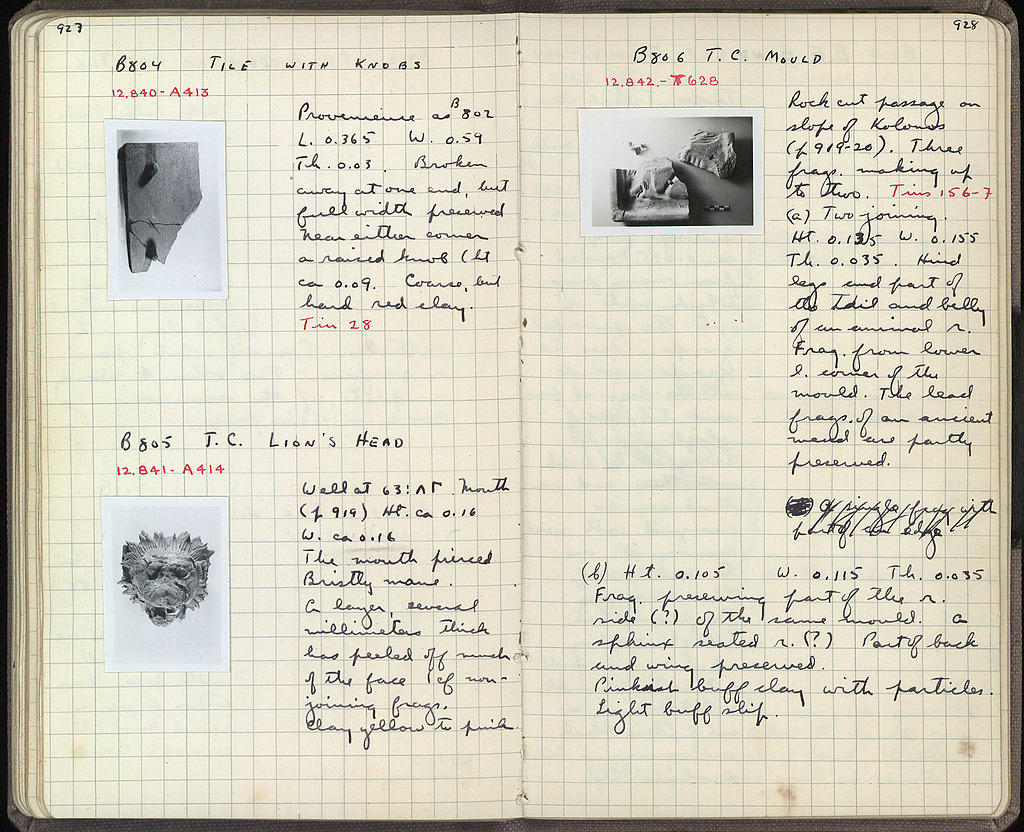 927
B804 TILE WITH KNOBS
12,840-A413
Provenience as B802
L. 0.365 W. 0.59
Th. 0.03. Broken
away at one end, but
full width preserved
near either corner
a raised knob (ht
ca 0.09. Coarse, but
hard red clay.
Tin 28
B805 T.C. LION'S HEAD
12,841-A414
Well at 63:ΛΓ. Mouth
(p 919) Ht. ca 0.16
W. ca 0.16
The mouth pierced
Bristly mane.
A layer, several
millimeters thick
has peeled off much
of the face cf non-
joining frags.
Clay yellow to pink
928
B806 T.C. MOULD
12,842.-T628
Rock cut passage on
slope of Kolonos
(p 919-20). Three
frags. making up
to two. Tins 156-7
(a) Two joining.
Ht. 0.135 W. 0.155
Th. 0.035. Hind
legs and part of
the tail and belly
of an animal r.
Frag. from lower
l. corner of the
mould. The lead
frags. of an ancient
mend are partly
preserved.
A single frag with
part of an edge
(b) Ht. 0.105 W. 0.115 Th. 0.035
Frag. preserving part of the r.
side (?) of the same mould. A
sphinx seated r. (?) Part of back
and wing preserved.
Pinkish buff clay with particles.
Light buff slip.